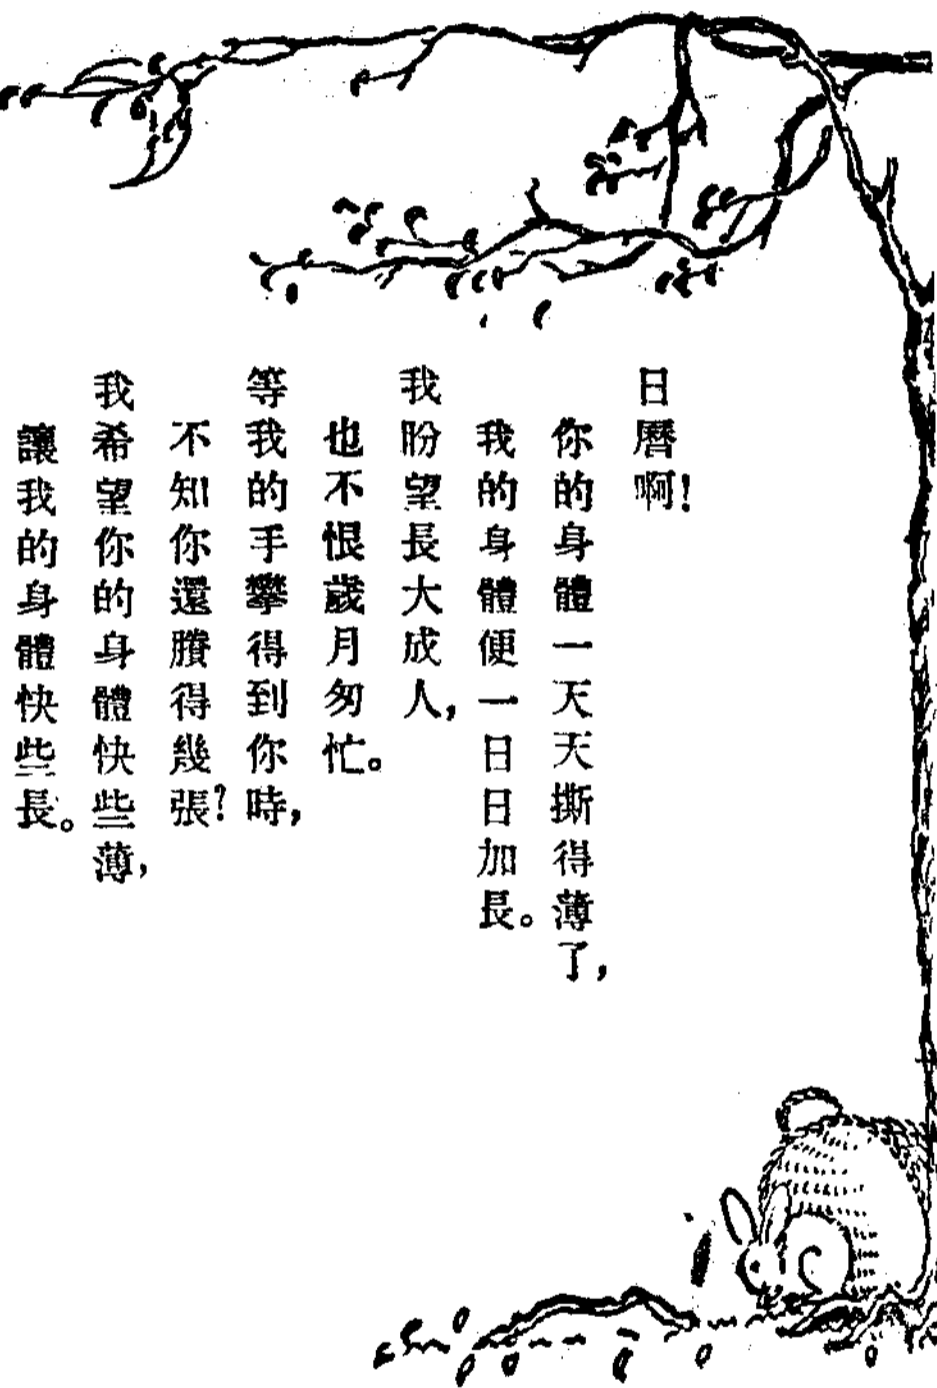 日曆啊！
你的身體一天天撕得薄了，
我的身體便一日日加長。
我盼望長大成人，
也不恨歲月匆忙。
等我的手攀得到你時，
不知你還賸得幾張？
我希望你的身體快些薄，
讓我的身體快些長。